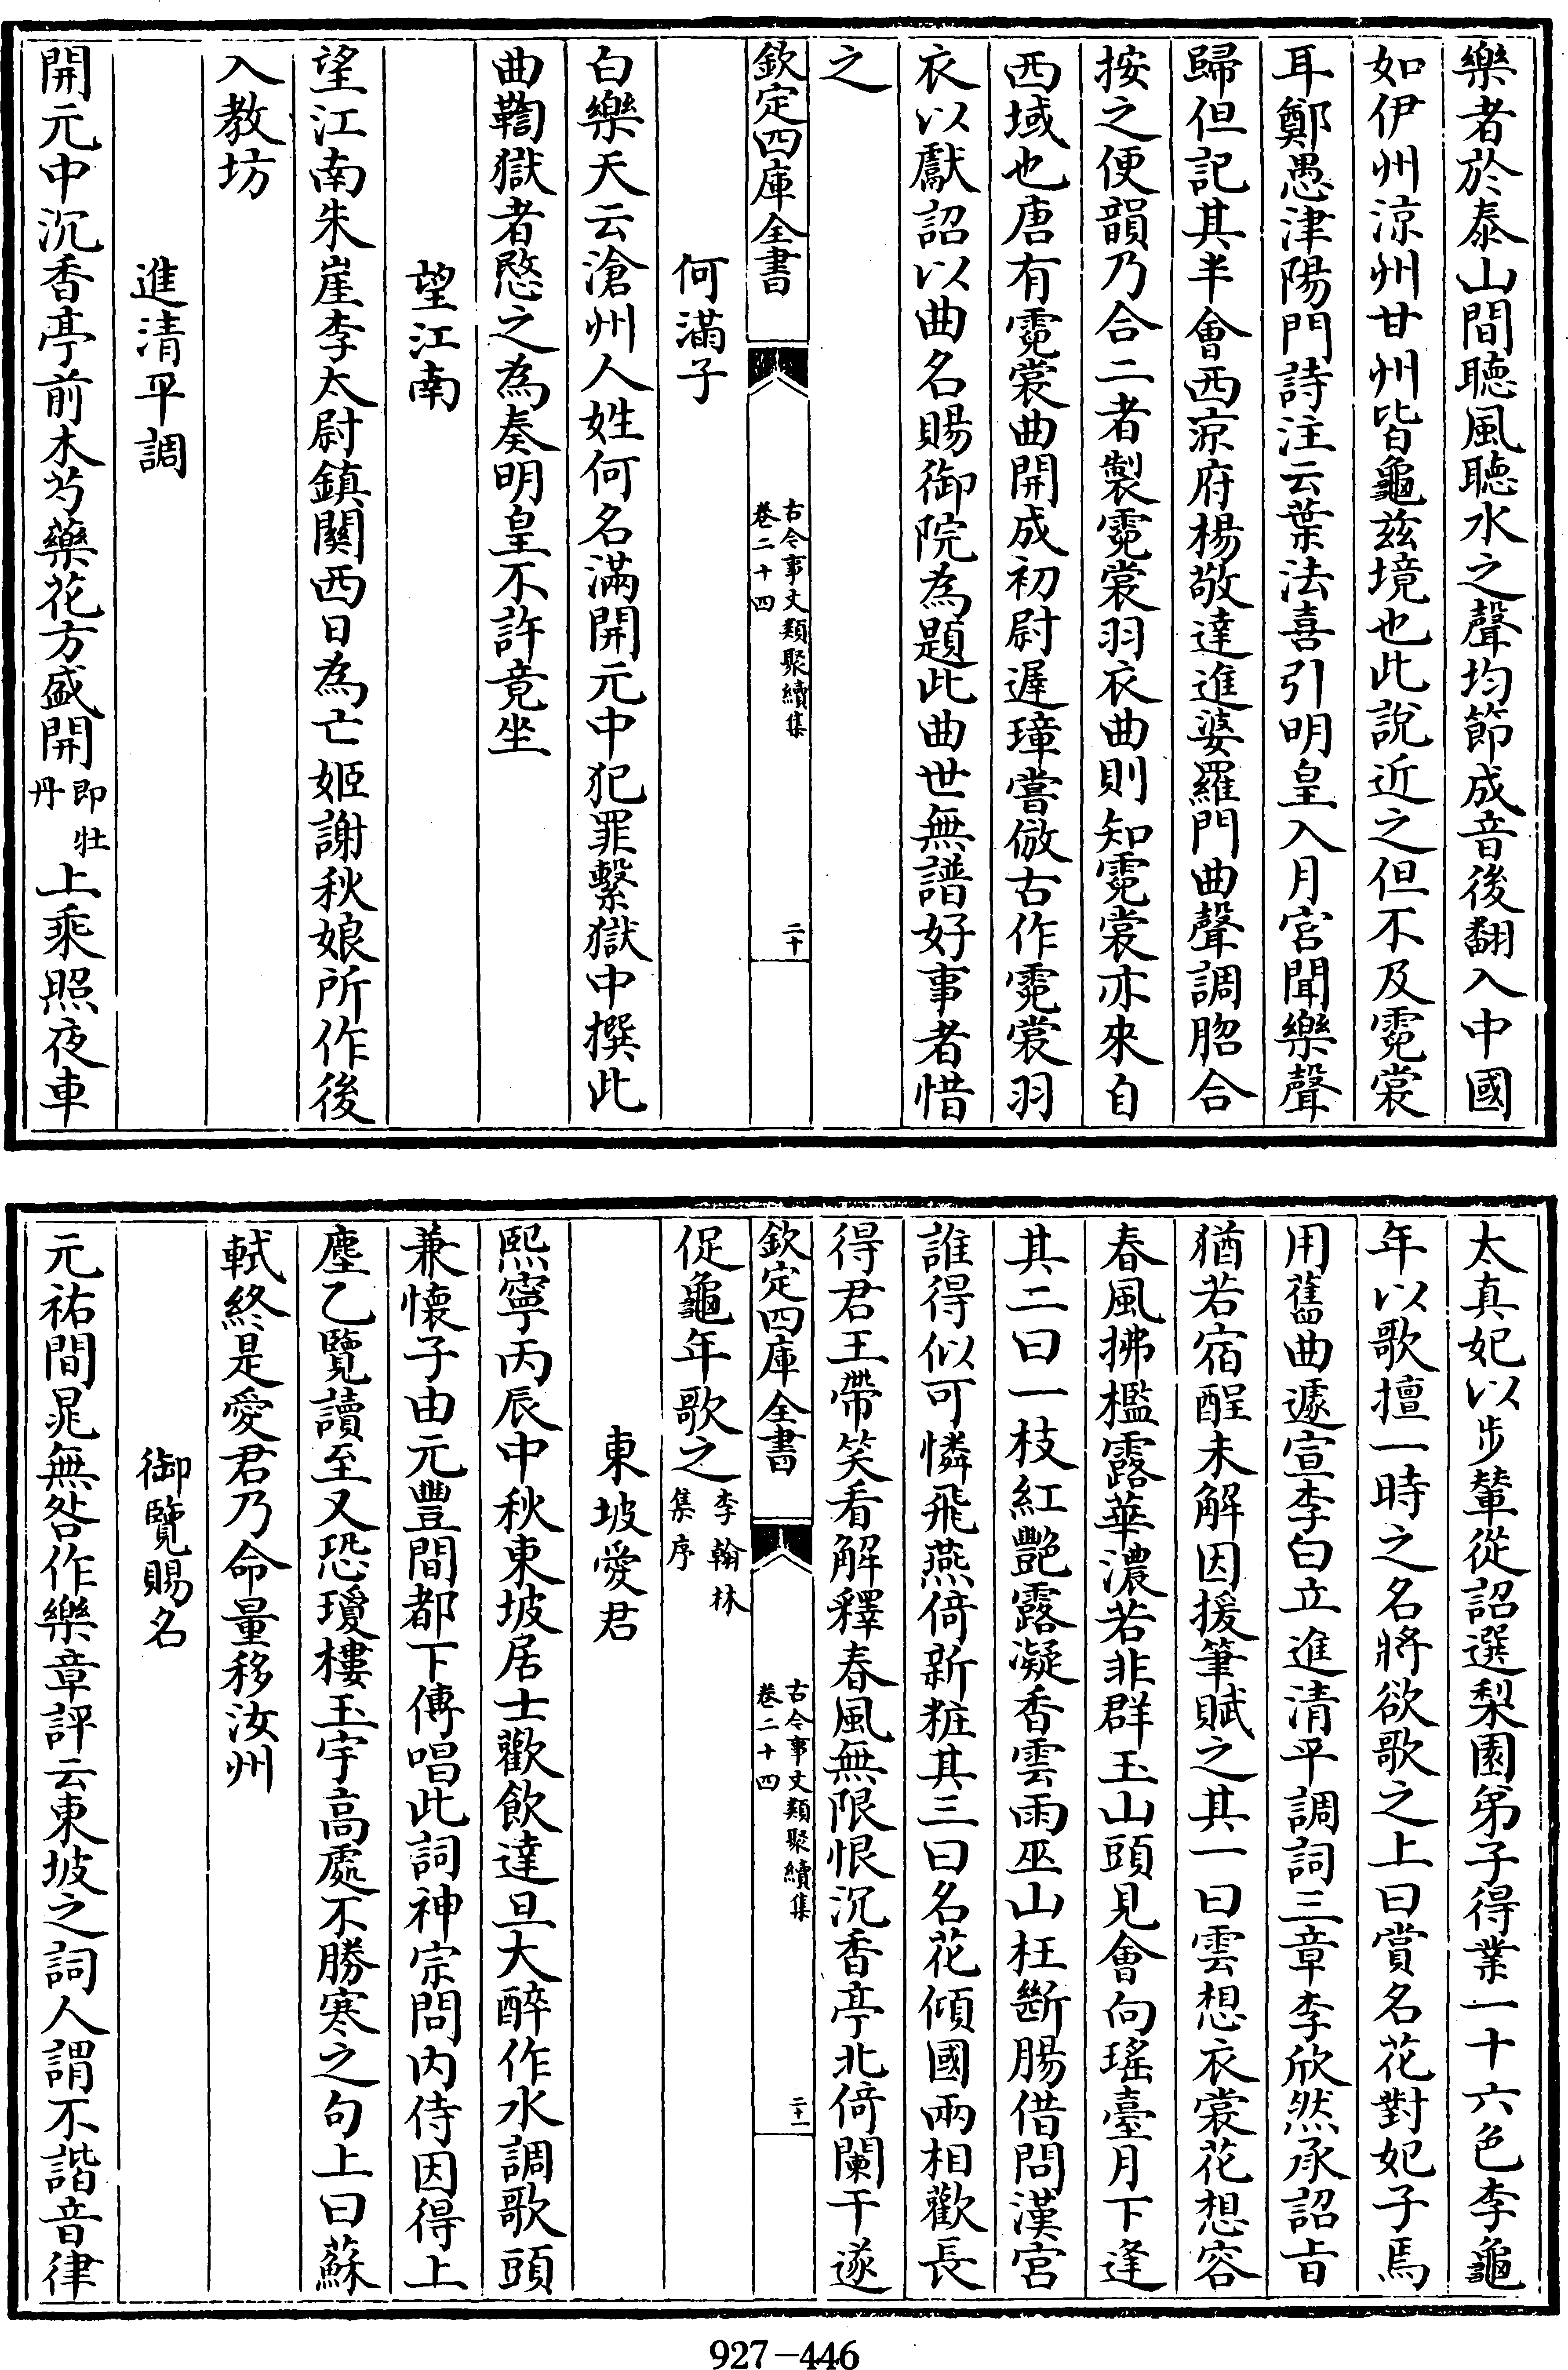 樂者於泰山間聽風聽水之聲均節成音後翻入中國
如伊州涼州甘州皆龜兹境也此說近之但不及霓裳
耳鄭愚津陽門詩注云葉法喜引明皇入月宮聞樂聲
歸但記其半會西凉府楊敬達進婆羅門曲聲調脗合
按之便韻乃合二者製霓裳羽衣曲則知霓裳亦來自
西域也唐有霓裳曲開成初尉遲璋嘗倣古作霓裳羽
衣以獻詔以曲名賜御院為題此曲世無譜好事者惜
之
欽定四庫全書
古今事文類聚續集
卷二十四
二十
何滿子
白樂天云滄州人姓何名滿開元中犯罪繫獄中撰此
曲鞫獄者愍之為奏明皇不許竟坐
望江南
望江南朱崖李太尉鎮闗西日為亡姬謝秋娘所作後
入教坊
進清平調
開元中沉香亭前木芍藥花方盛開即牡丹上乘照夜車
太真妃以步輦從詔選梨園弟子得業一十六色李龜
年以歌擅一時之名將欲歌之上曰賞名花對妃子焉
用舊曲遽宣李白立進清平調詞三章李欣然承詔旨
猶若宿酲未解因援筆賦之其一曰雲想衣裳花想容
春風拂檻露華濃若非群玉山頭見會向瑤臺月下逢
其二曰一枝紅艷露凝香雲雨巫山枉斷腸借問漢宮
誰得似可憐飛燕倚新粧其三曰名花傾國兩相歡長
得君王帶笑看解釋春風無限恨沉香亭北倚闌干遂
欽定四庫全書
古今事文類聚續集
卷二十四
二十一
促龜年歌之李翰林集序
東坡愛君
熙寧丙辰中秋東坡居士歡飲達旦大醉作水調歌頭
兼懷子由元豐間都下傳唱此詞神宗問内侍因得上
塵乙覽讀至又恐瓊樓玉宇高處不勝寒之句上曰蘇
軾終是愛君乃命量移汝州
御覽賜名
元祐間晁無咎作樂章評云東坡之詞人謂不諧音律
927-446